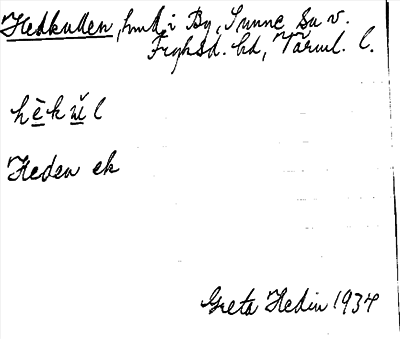 Hedkullen, hmd i By, Sunne sn v.
Fryksd. hd, Värml. l.
hèkŭl
Heden ek
Greta Hedin 1934